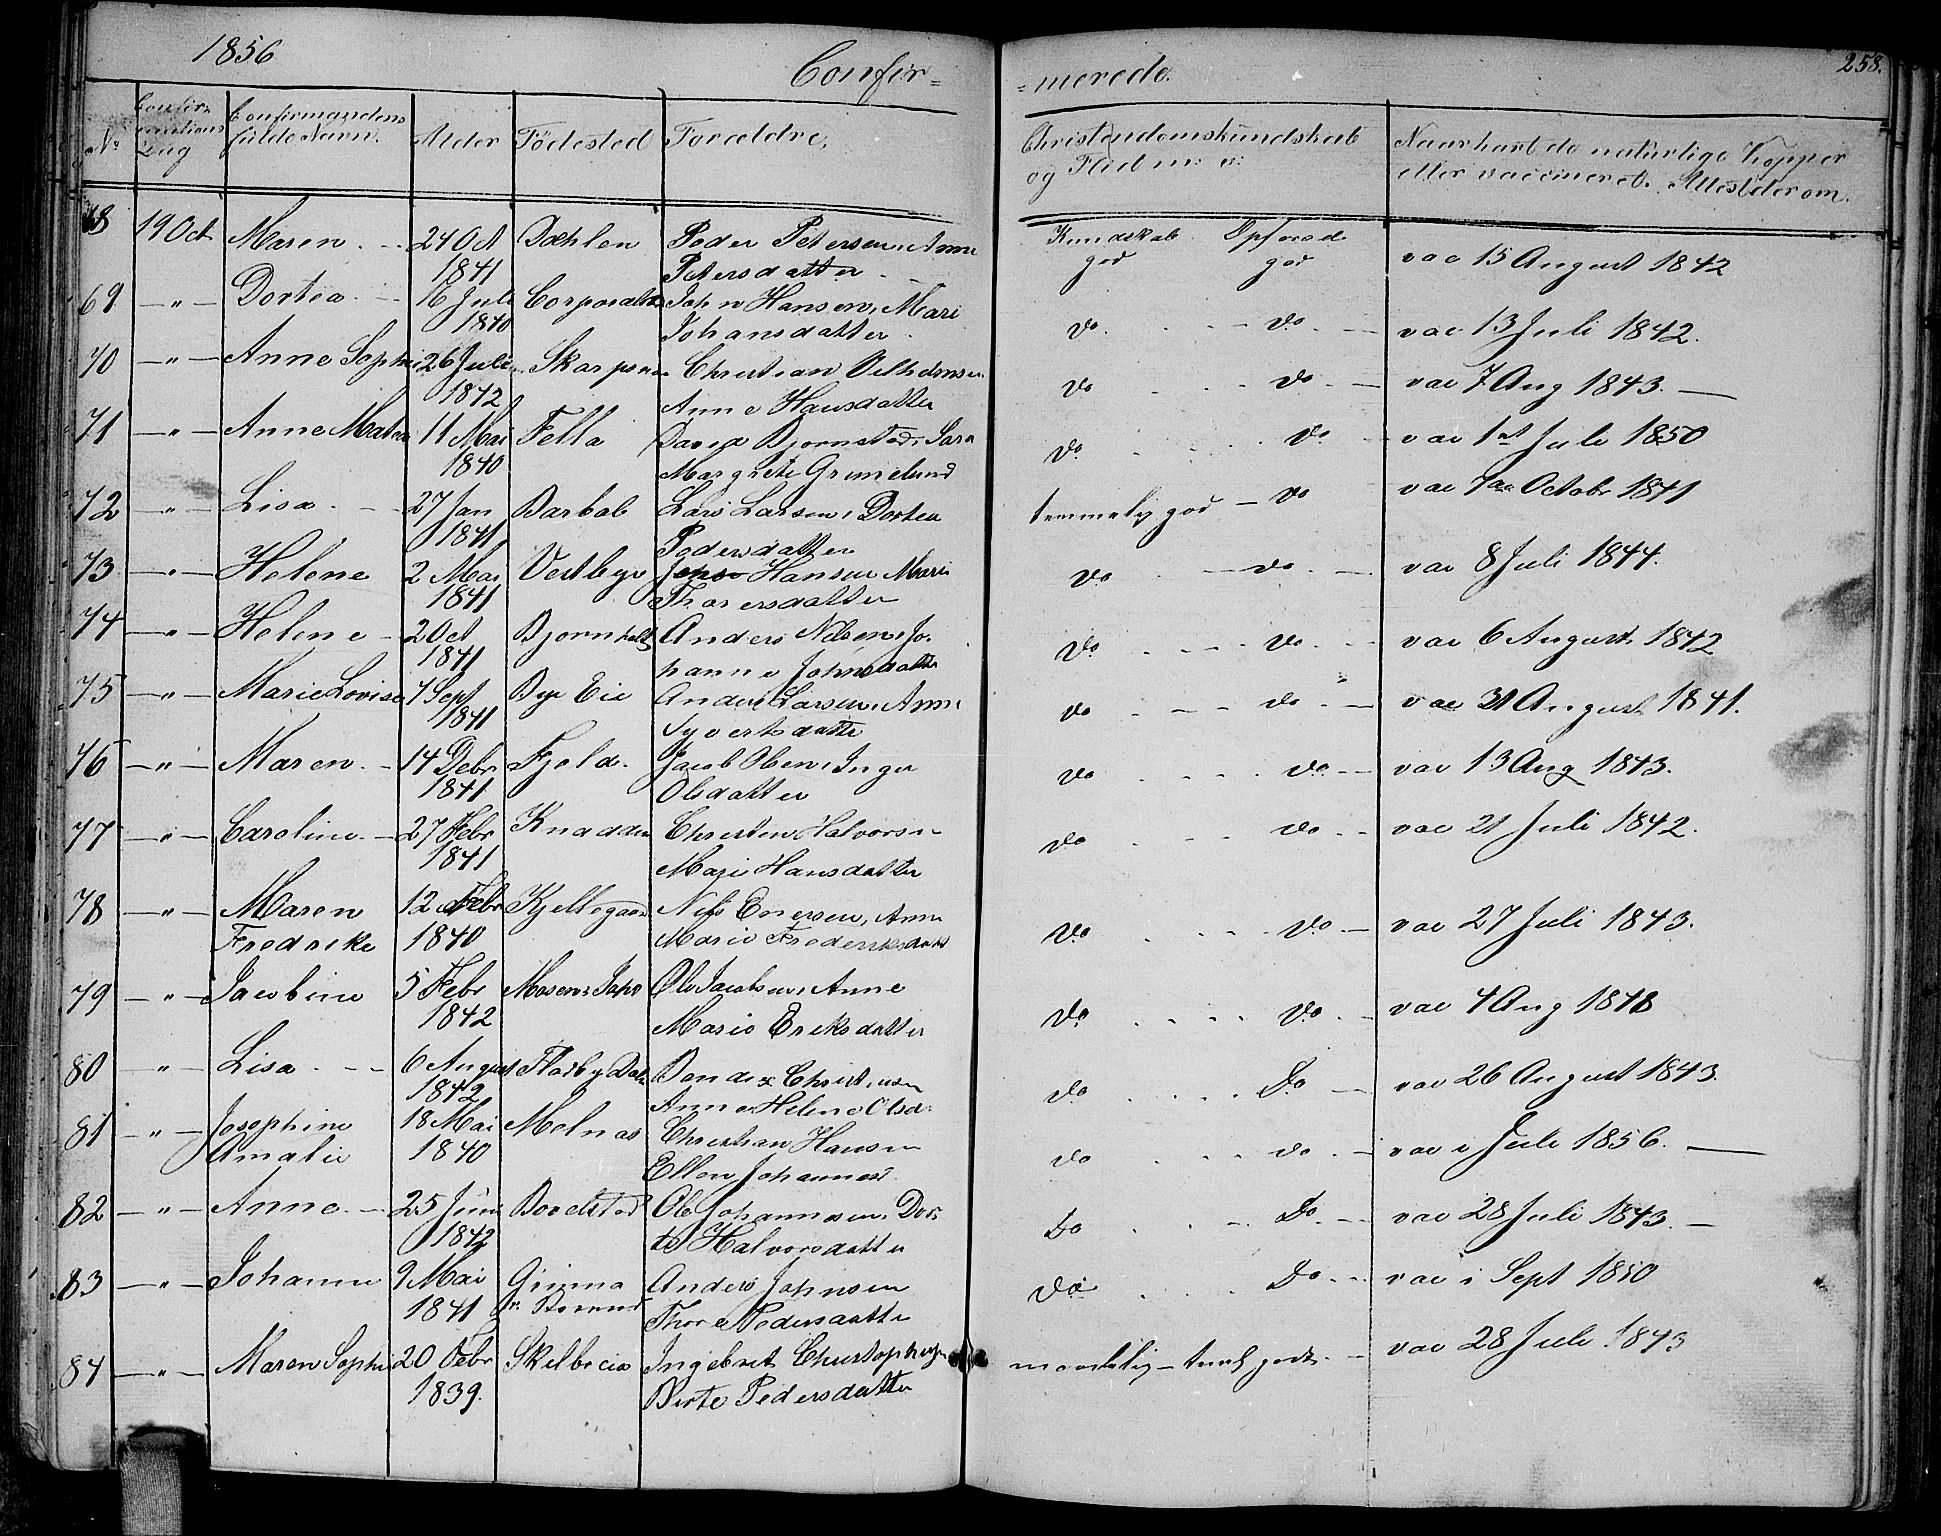 1856
Confir=
=merede.
258.
No
Confir-
mations
Dag
Confirmandens
fulde Navn.
Alder
Födested
Forældre,
Christendomskundskab
og Flid m: v:
Naar havt de naturlige Kopper
eller vaccineret. Attester om.
68 19 Oct Maren 24 Oct Dæhlen Peder Petersen, Anne
1841 Petersdatter
Kundskab Opförsel
god god vac 15 August 1842
69 — " — Dortea 16 Juli John Hansen, Mari
1840 Johansdatter
do do vac 13 Juli 1842.
70 — " — Anne Sophie 26 Juli Skarpsno Christian Vilhelmsen
1842 Anne Hansdatter
do do vac 7 Aug 1843.
71 — " — Anne 11 Mai Fella David Bjornstad, Sara
1840 Margrete Grimelund
do do vac 1st Juli 1850
72 — " — Lisa 27 Jan Barbøl Lars Larsen, Dortea
1841 Pedersdatter
temmelig god — do vac Octobr 1841
73 — " — Helene 2 Mai Vestbye Hansen Mari
1841 Thorersdatter
do do vac 8 Juli 1844.
74 — " — Helene 2 Oct Bjornholt Anders Nilsen, Jo-
1841 hanne Johnsdatter
do do vac 6 August 1842
75 — " — Marie Lovise 7 Sept Bye Eie Anders Larsen, Anne
1841 Syvertsdatter
do do vac 31 August 1841.
76 — " — Maren 14 Debr Fjeld Jacob Olsen, Inger
1841 Olsdatter
do do vac 13 Aug 1843.
77 — " — Caroline 27 Febr Knadden Christen Halvorsen
1841 Mari Hansdatter
do do vac 21 Juli 1842.
78 — " — Maren 12 Febr Nils Enersen, Anne
Fredrike 1840 Marie Frederiksdatt
do do vac 27 Juli 1843.
79 — " — Jacobine 5 Febr Ole Jacobsen, Anne
1842 Marie Eriksdatter
do do vac 4 Aug 1848
80 " — Lisa 6 August Christensen
1842 Anne Helene Olsd:
do Do vac 26 August 1843.
81 — " — Josephine 18 Mai Melnæs Christian Hansen
Amalie 1840 Ellen Johannesd
do do vac i Juli 1856.
82 — " — Anne 25 Juni Bovelstad Ole Johannesen, Dor-
1842 te Halvorsdatter
Do Do vac 28 Juli 1843.
83 — " — Johanne 9 Mai Anders Johnsen
1841 Thore Pedersdatter
do Do vac i Sept 1850
84 — " — Maren Sophie 20 Febr Skelbreia Ingebret Christophersen
1839. Birte Pedersdatter
maadelig — vac 28 Juli 1843